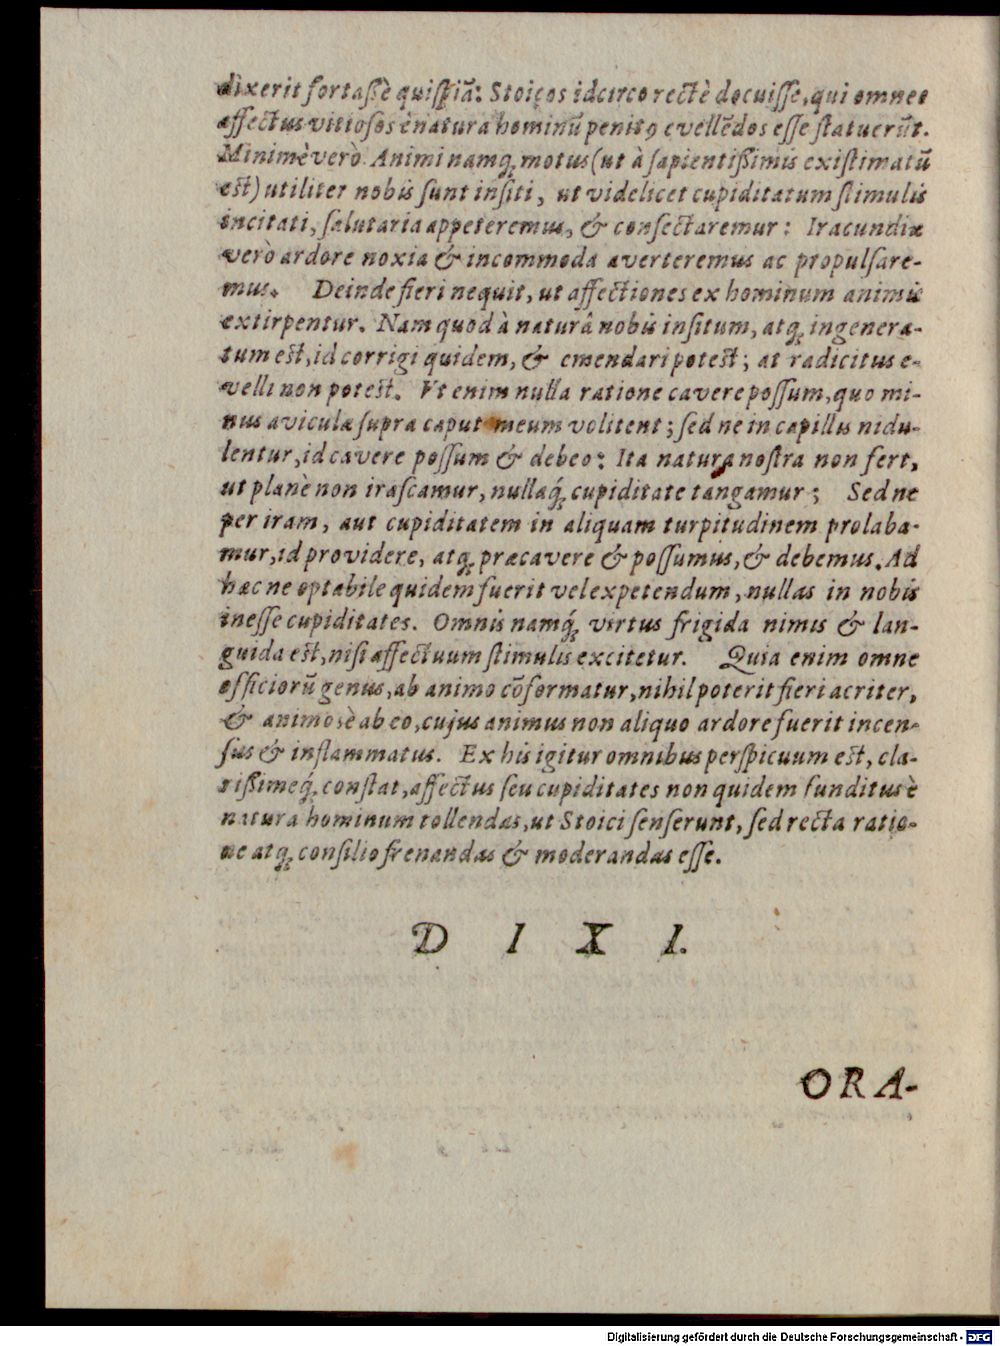 dixerit fortaſſè quiſpiã: Stoicos idcirco rectè docuiſſe, qui omnes
affectus vitioſos è natura hominũ penitꝰ evellẽdos eſſe ſtatuerũt.
Minimè verò. Animi namq́; motus (ut à ſapientiſſimis exiſtimatũ
eſt) utiliter nobis ſunt inſiti, ut videlicet cupiditatum ſtimulis
incitati, ſalutaria appeteremus, & conſectaremur: Iracundiæ
verò ardore noxia & incommoda averteremus ac propulſare-
mus. Deinde fieri nequit, ut affectiones ex hominum animis
extirpentur. Nam quod à naturâ nobis inſitum, atq; ingenera-
tum eſt, id corrigi quidem, & emendari poteſt; at radicitus e-
velli non poteſt. Vt enim nulla ratione cavere poſſum, quo mi-
nus aviculæ ſupra caput meum volitent; ſed ne in capillis nidu-
lentur, id cavere poſſum & debeo: Ita natura noſtra non fert,
ut planè non iraſcamur, nullaq́; cupiditate tangamur; Sed ne
per iram, aut cupiditatem in aliquam turpitudinem prolaba-
mur, id providere, atq; præcavere & poſſumus, & debemus. Ad
hæc ne optabile quidem fuerit vel expetendum, nullas in nobis
ineſſe cupiditates. Omnis namq́; virtus frigida nimis & lan-
guida eſt, niſi affectuum ſtimulis excitetur. Quia enim omne
officiorũ genus, ab animo cõformatur, nihil poterit fieri acriter,
& animosè ab eo, cujus animus non aliquo ardore fuerit incen-
ſus & inflammatus. Ex his igitur omnibus perſpicuum eſt, cla-
riſſimeq́; conſtat, affectus ſeu cupiditates non quidem funditus è
natura hominum tollendas, ut Stoici ſenſerunt, ſed recta ratio-
ne atq; conſilio frenandas & moderandas eſſe.
D I X I.
ORA-
Digitalisierung gefördert durch die Deutsche Forschungsgemeinschaft - DFG